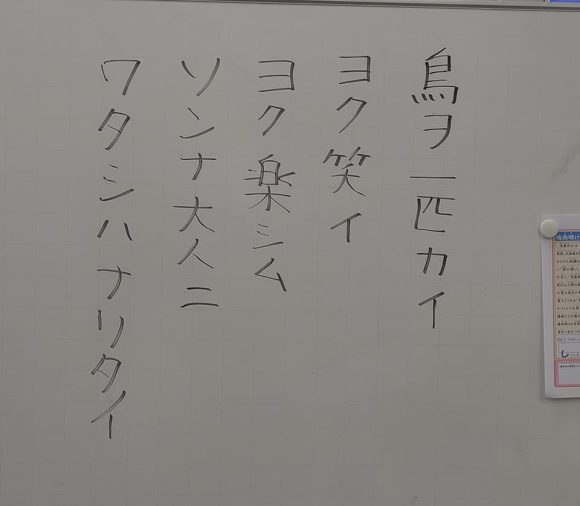 鳥ヲ一匹カイ
ヨク笑イ
ヨク楽シム
ソンナ大人ニ
ワタシハナリタイ